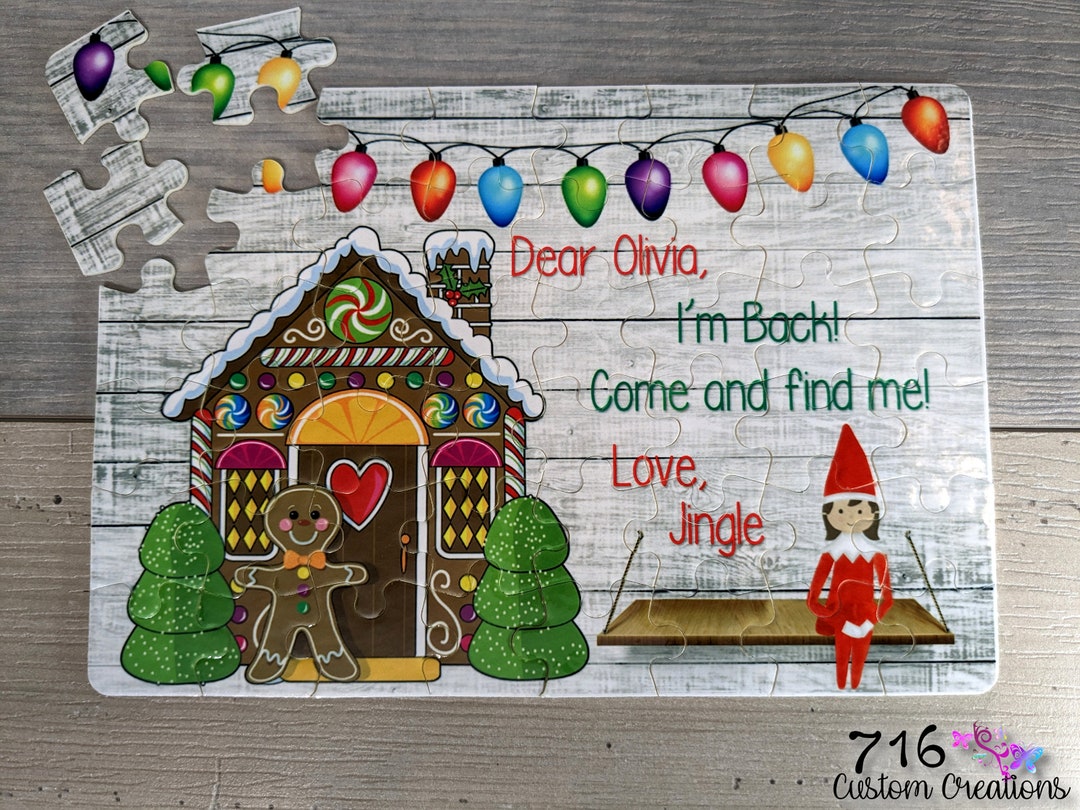 Dear Olivia,
I'm Back!
Come and find me!
Love,
Jingle
716
Custom Creations